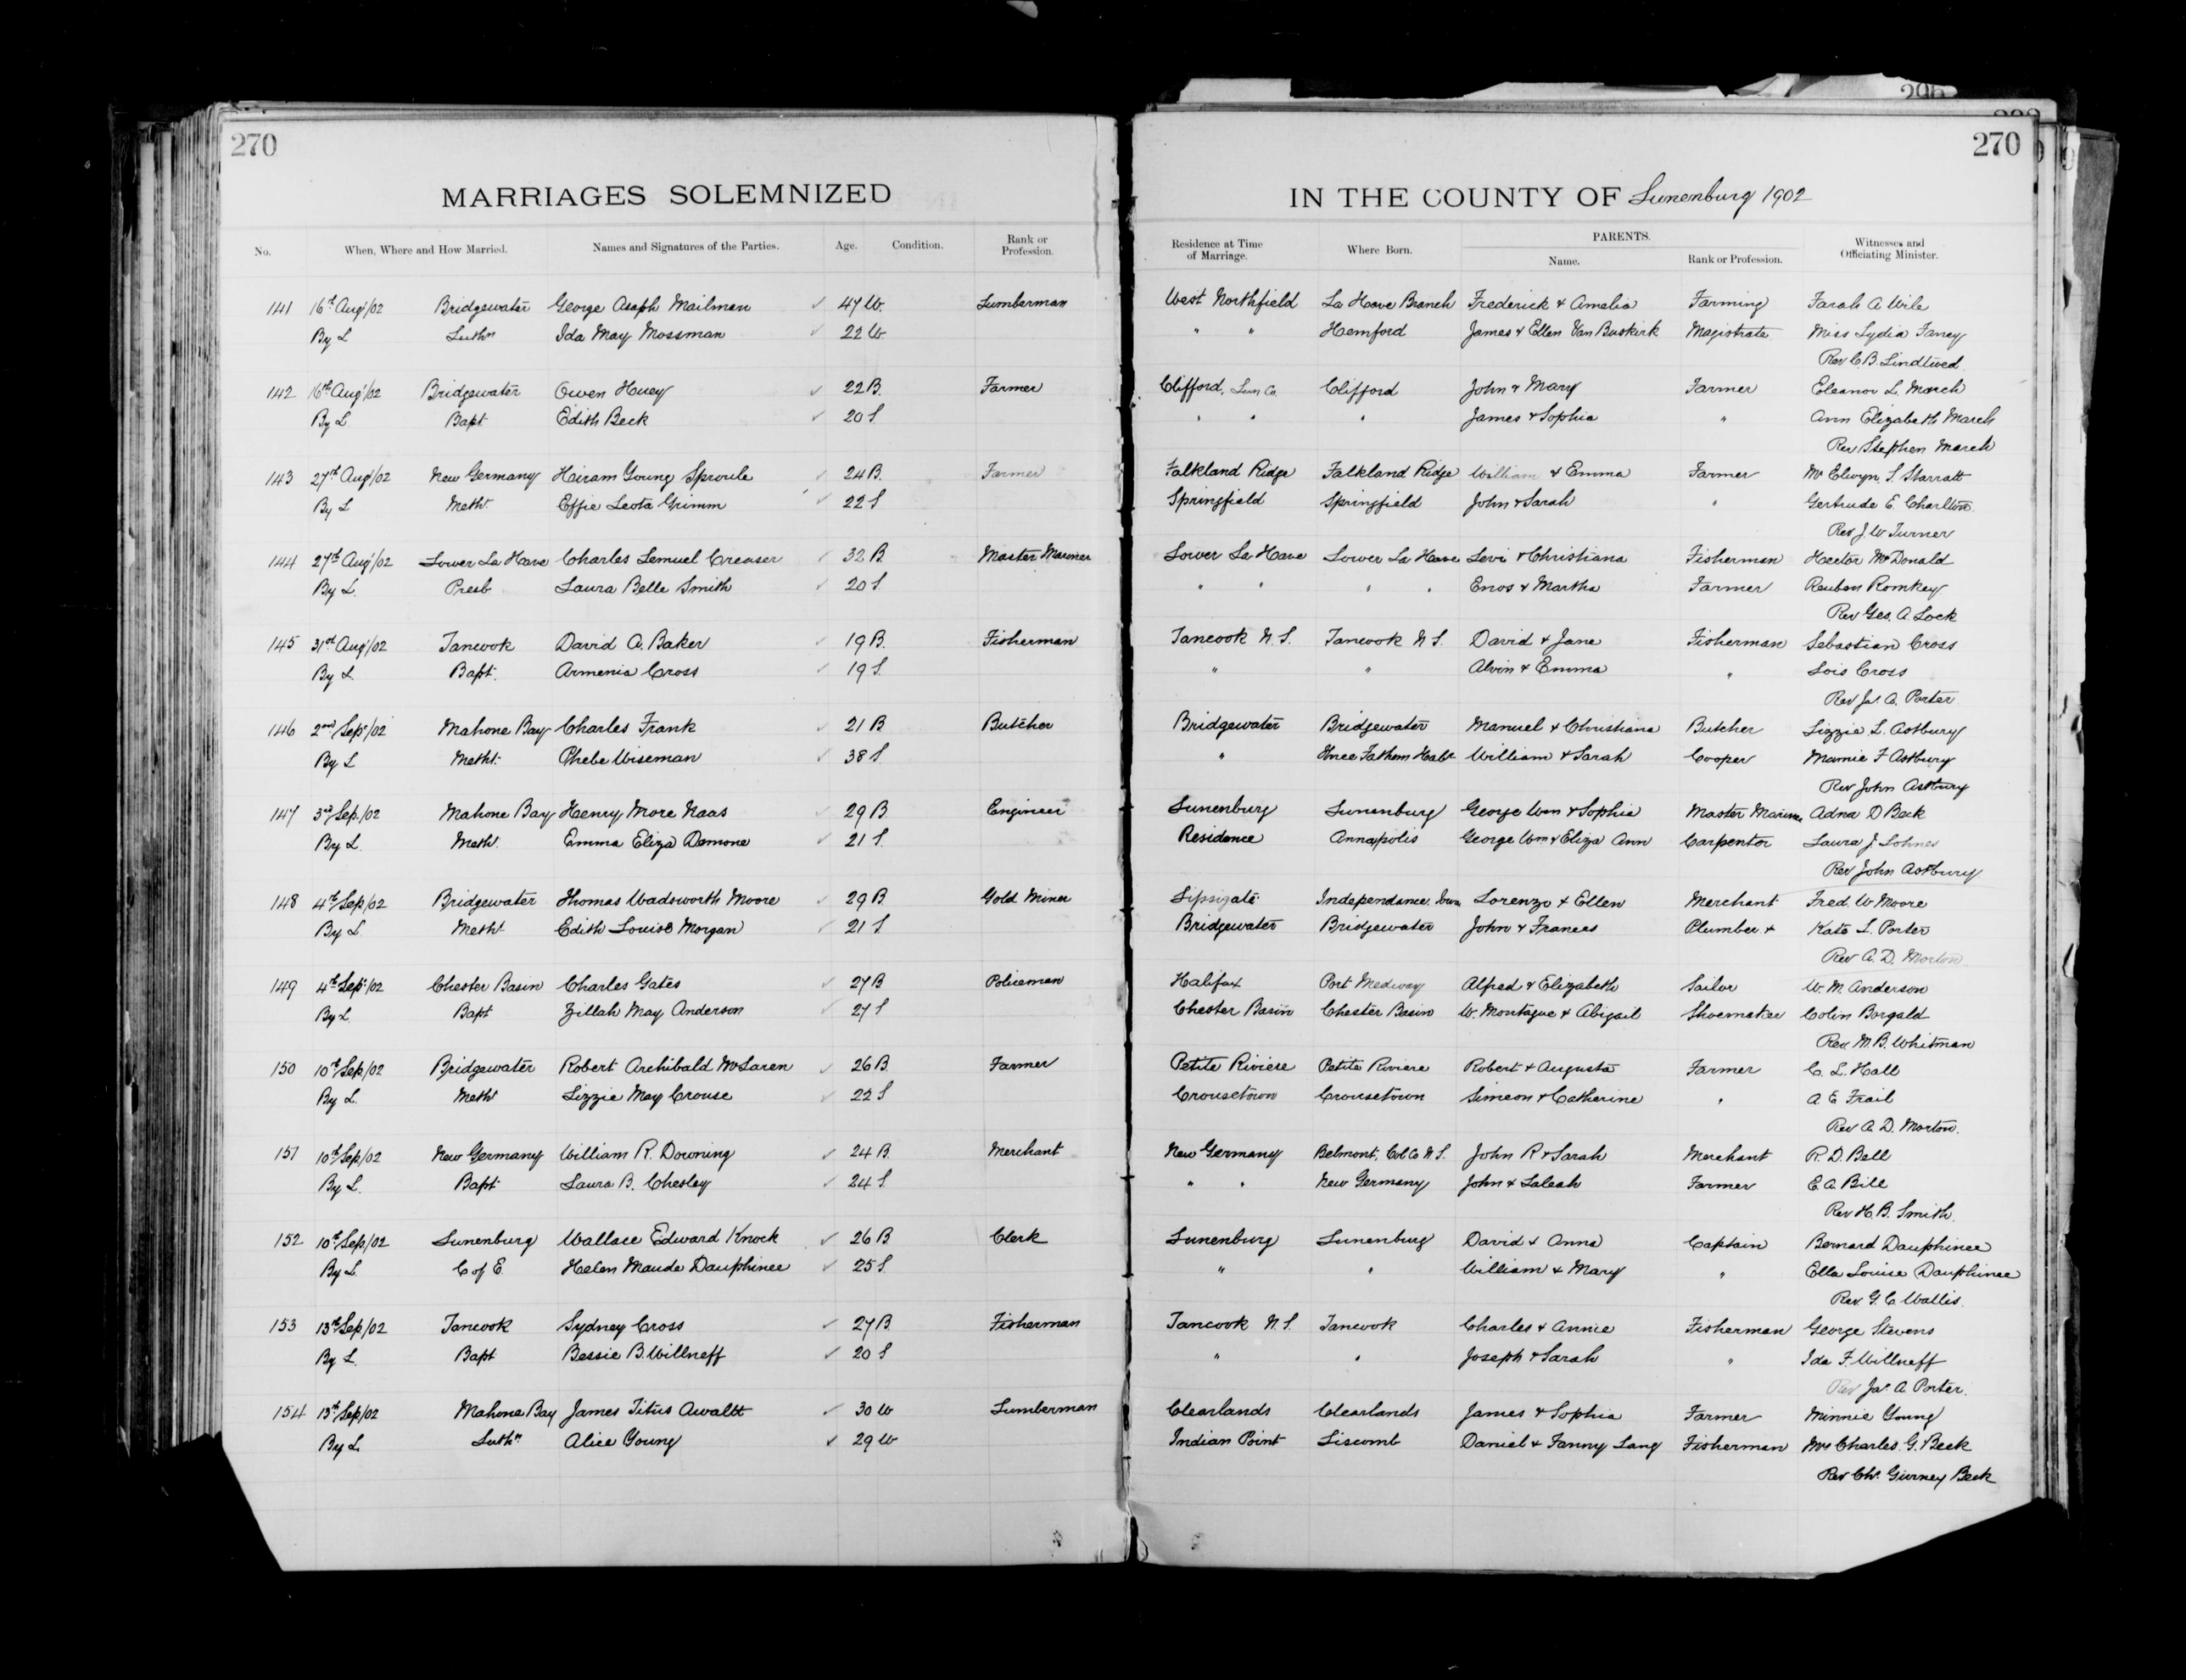 296
270
270
MARRIAGES SOLEMNIZED IN THE COUNTY OF Lunenburg 1902
No. When, Where and How Married. Names and Signatures of the Parties. Age. Condition. Rank or Profession. Residence at Time of Marriage. Where Born. PARENTS. Name. Rank or Profession. Witnesses and Officiating Minister.
141 16th Aug/02 Bridgewater George Asaph Mailman 47 W. Lumberman West Northfield La Have Branch Frederick & Amelia Farming Sarah A Wile
By L Luthn Ida May Mossman 22 W. " " Hemford James & Ellen Van Buskirk Magistrate Miss Lydia
Rev C.B. Lindtwed
142 16th Aug/02 Bridgewater Owen Huey 22 B. Farmer Clifford, Lun Co. Clifford John & Mary Farmer Eleanor L. March
By L Bapt Edith Beck 20 S. " " " James & Sophia " Ann Elizabeth March
Rev Stephen March
143 27th Aug/02 New Germany Hiram Young Sproule 24 B. Farmer Falkland Ridge Falkland Ridge William & Emma Farmer Mr Elwyn. S. Starratt
By L Metht. Effie Leota Grimm 22 S Springfield Springfield John & Sarah " Gertrude E. Charlton
Rev J. W Turner
144 27th Aug/02 Lower La Have Charles Lemuel Creaser 32 B. Master Mariner Lower La Have Lower La Have Levi & Christiana Fisherman Hector McDonald
By L. Presb Laura Belle Smith 20 S. " " " " Enos & Martha Farmer Reuben Romkey
Rev Geo. A Lock
145 31st Aug/02 Tancook David A. Baker 19 B. Fisherman Tancook N.S. Tancook N S. David & Jane Fisherman Sebastian Cross
By L. Bapt. Armenia Cross 19 S. " " Alvin & Emma " Lois Cross
Rev Jas. A. Porter
146 2nd Sep/02 Mahone Bay Charles Frank 21 B Butcher Bridgewater Bridgewater Manuel & Christiana Butcher Lizzie L. Astbury
By L Metht. Phebe Wiseman 38 S. " Three Fathom Habr William & Sarah Cooper Mamie F Astbury
Rev John Astbury
147 3rd Sep./02 Mahone Bay Henry More Naas 29 B Engineer Lunenburg Lunenburg George Wm & Sophia Master Mariner Adna D Beck
By L. Metht. Emma Eliza Demone 21 S. Residence Annapolis George Wm & Eliza Ann Carpenter Laura J. Lohnes
Rev John Astbury
148 4th Sep/02 Bridgewater Thomas Wadsworth Moore 29 B Gold Miner Independance, Lorenzo & Ellen Merchant Fred W Moore
By L Metht Edith Louise Morgan 21 S. Bridgewater Bridgewater John & Frances Plumber & Kate L. Porter
Rev A. D. Morton
149 4th Sep/02 Chester Basin Charles Gates 27 B Policeman Halifax Port Medway Alfred & Elizabeth Sailor W. M. Anderson
By L Bapt Zillah May Anderson 27 S Chester Basin Chester Basin W. Montague & Abigail Shoemaker Colin Borgald
Rev. M. B. Whitman
150 10th Sep/02 Bridgewater Robert Archibald McLaren 26 B. Farmer Petite Riviere Petite Riviere Robert & Augusta Farmer C. L. Hall
By L. Metht Lizzie May Crouse 22 S Crousetown Crousetown Simeon & Catherine " A E Frail
Rev A. D. Morton.
151 10th Sep/02 New Germany William R. Downing 24 B. Merchant New Germany Belmont, Col Co N S. John R & Sarah Merchant R. D. Bell
By L. Bapt Laura B. Chesley 24 S. " " New Germany John & Saleah Farmer E. A. Bill
Rev H. B. Smith.
152 10th Sep/02 Lunenburg Wallace Edward Knock 26 B Clerk Lunenburg Lunenburg David & Anna Captain Bernard Dauphinee
By L. C of E Helen Maude Dauphinee 25 S. " " William & Mary " Ella Louise Dauphinee
Rev. G. C Wallis.
153 13th Sep/02 Tancook Sydney Cross 27 B. Fisherman Tancook N.S. Tancook Charles & Annie Fisherman George Stevens
By L. Bapt Bessie B. Willneff 20 S " " Joseph & Sarah " Ida F. Willneff
Rev Jas. A. Porter.
154 13th Sep/02 Mahone Bay James Titus Awaltt 30 W Lumberman Clearlands Clearlands James & Sophia Farmer Minnie Young
By L. Luthn Alice Young 29 W Indian Point Liscomb Daniel & Fanny Lang Fisherman Mrs Charles. G. Beck
Rev Chs. Gurney Beck